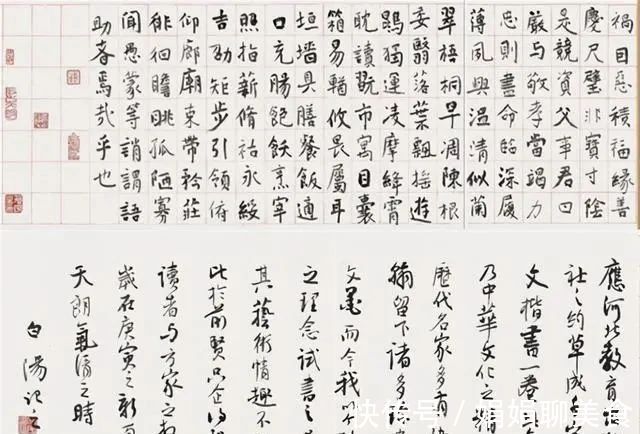 禍因惡積福緣善
慶尺璧非寶寸陰
是競資父事君曰
嚴与敬孝當竭力
忠則盡命臨深履
薄夙興温清似蘭
翠梧桐早凋陳根
委翳落葉飄搖遊
鵾獨運凌摩絳霄
耽讀翫市寓目囊
箱易輶攸畏屬耳
垣墻具膳餐飯適
口充腸飽飫烹宰
照指薪脩祜永綏
吉劭矩步引領俯
仰廊廟束帶矜莊
徘徊瞻眺孤陋寡
聞愚蒙等誚謂語
助者焉哉乎也
應河北教育
社之約草成
文楷書一卷
乃中華文化之
歷代名家多有
留下諸多
文墨而今我
之理念試書之
其藝術情趣不
此於前賢只企
讀者与方家之
歲在庚寅之新
天朗氣清之時
白陽記之
快传号 / 娟娟聊美食